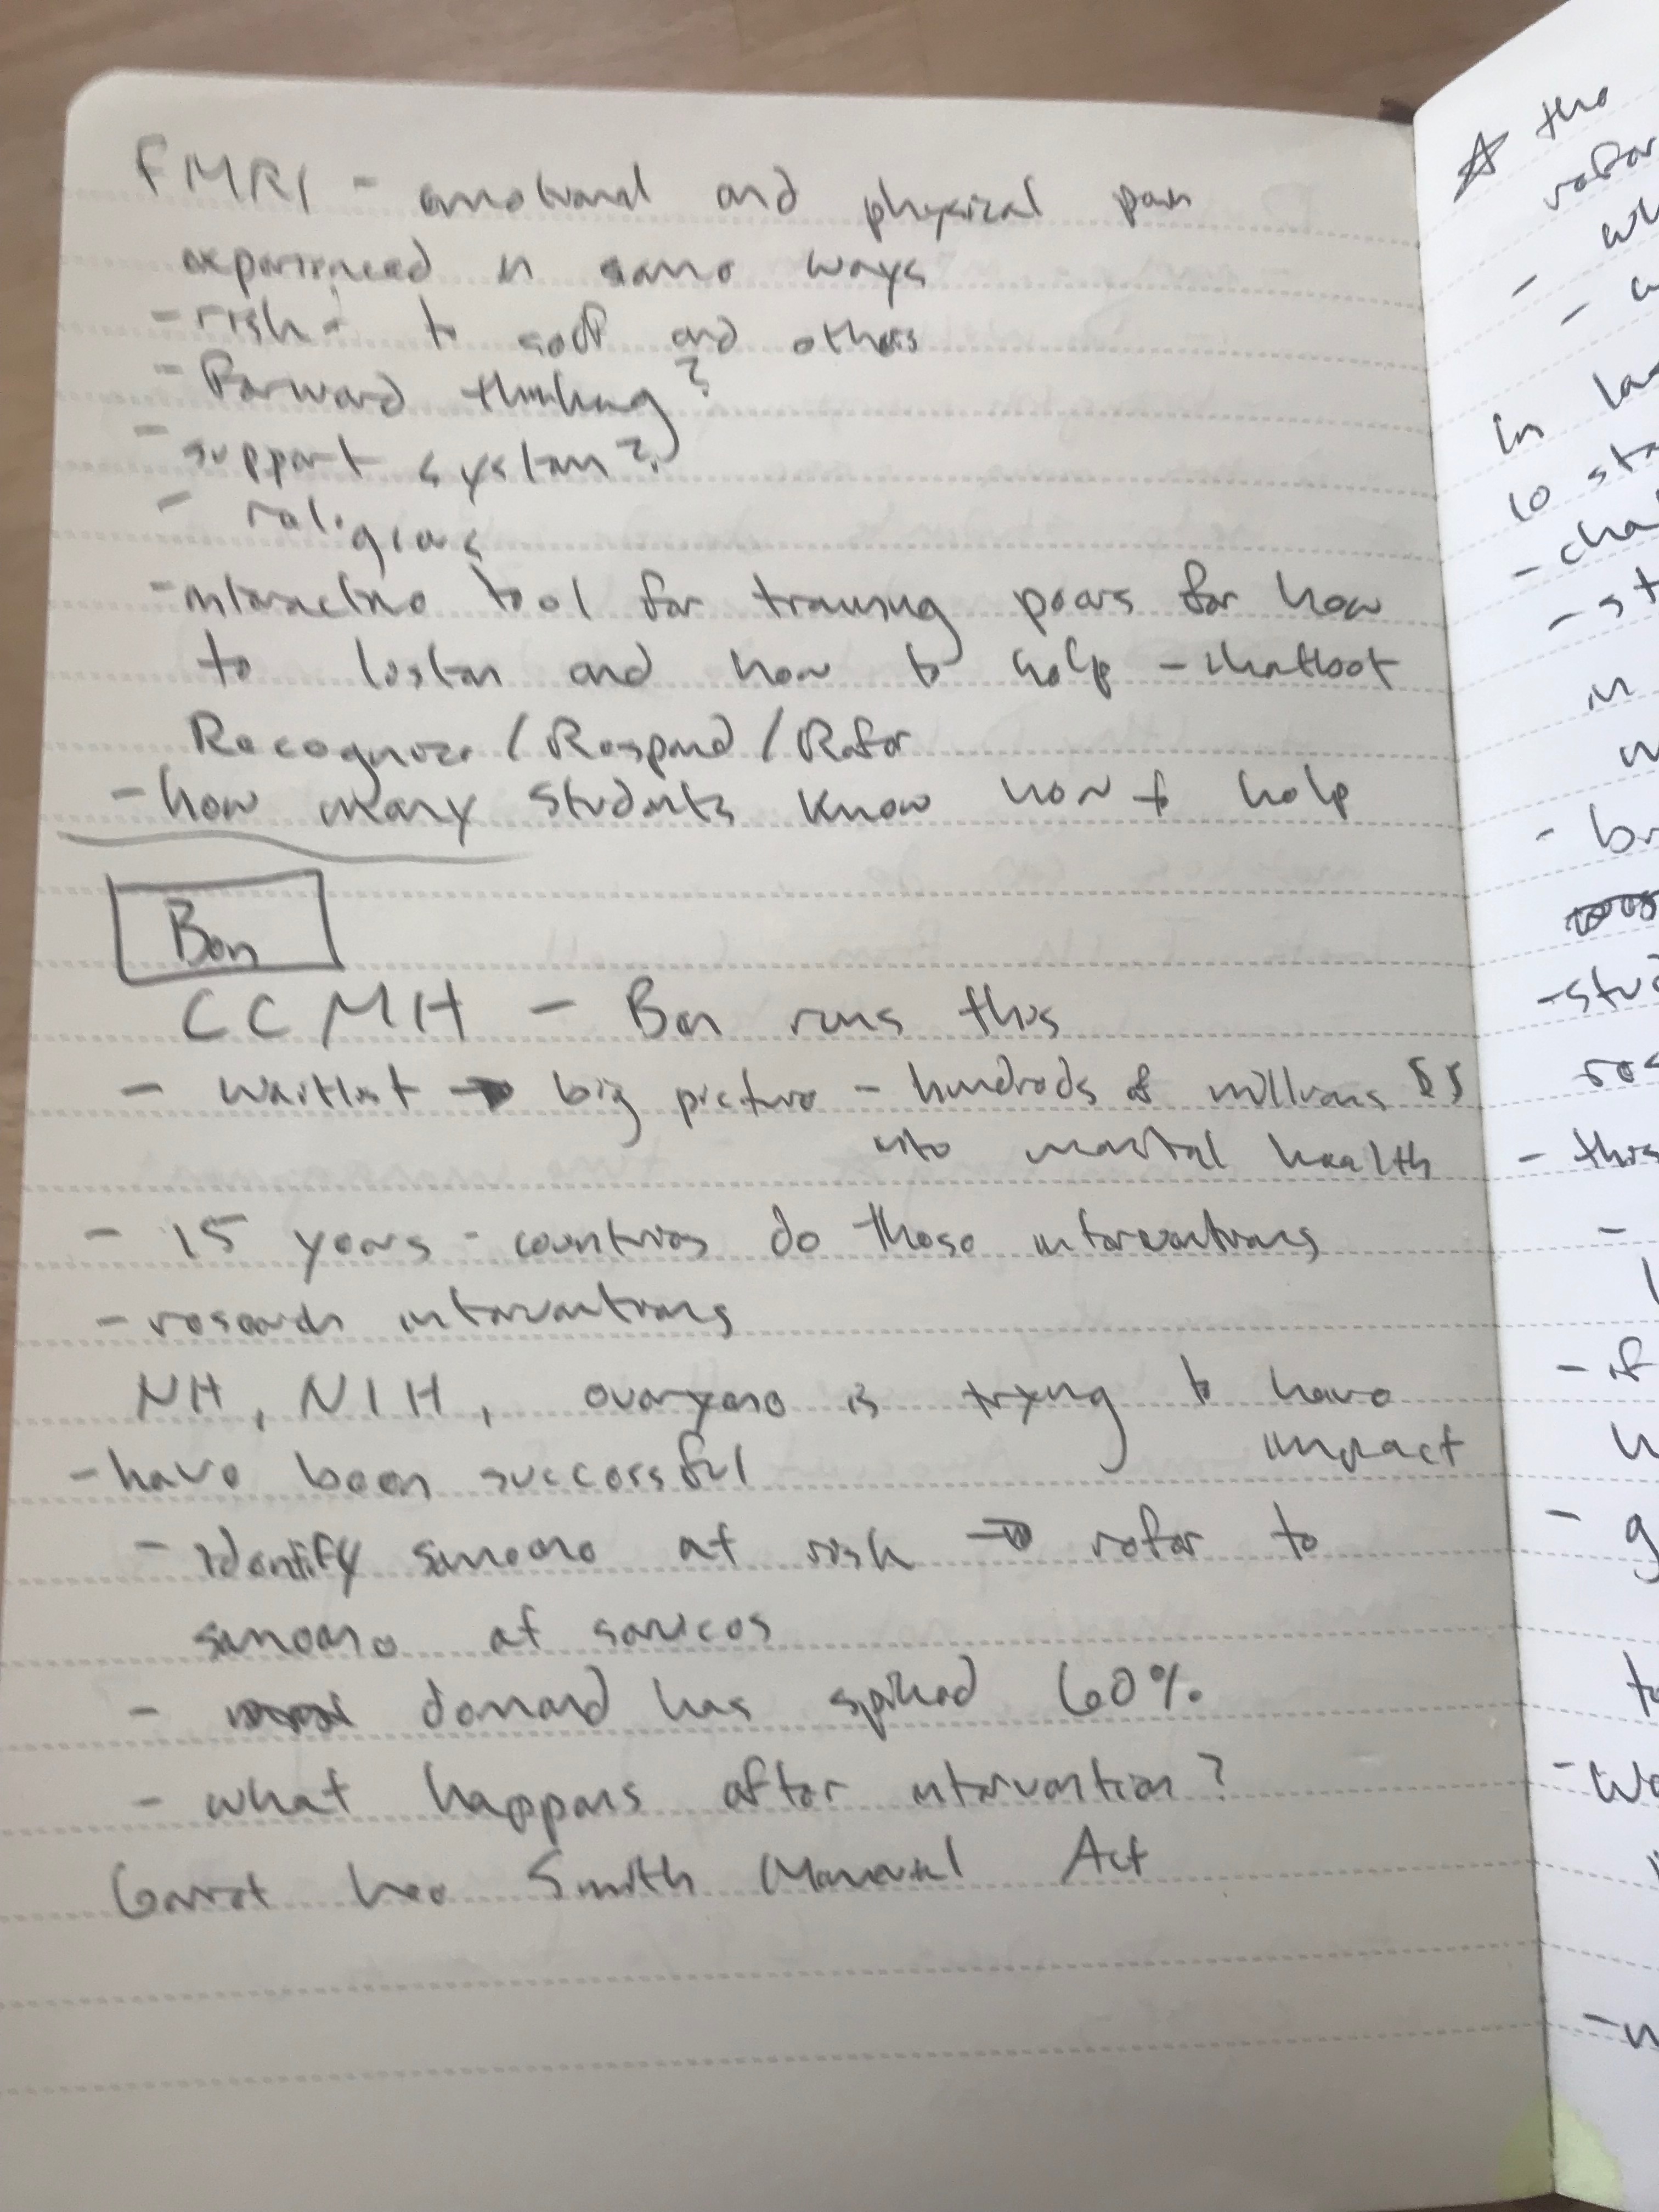 FMRI - emotional and physical pain
experienced in same ways
- risk - to self and others
- Forward thinking?
- support system?
- religious
- interactive tool for training peers for how
to listen and how to help - chatbot
Recognize / Respond / Refer
- how many students know how to help
Ben
CCMH - Ben runs this
- waitlist → big picture - hundreds of millions $$
into mental health
- 15 years - countries do these interventions
- research interventions
NH, NIH, everyone is trying to have
impact
- have been successful
- identify someone at risk → refer to
someone at services
- demand has spiked 60%
- what happens after intervention?
Garret Lee Smith Memorial Act
☆ the
refer
-
-
in
10
-
- st
in
- br
- stud
res
- this
-
- if
- g
to
-
-